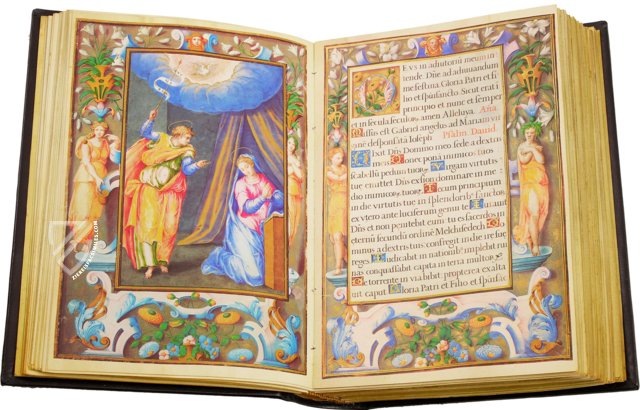 EVS in adiutoriũ meum in
tende. Dñe ad adiuuandum
me festina Gloria Patri et fi
lio et spũi sancto. Sicut erat i
principio et nunc et semper
et in secula seculorũ amen Alleluya. Aña.
Missus est Gabriel angelus ad Mariam vir
ginẽ desponsatã Ioseph Psalm. Dauid.
Dixit Dñs Domino meo sede a dextris
meis. Donec pona inimicos tuos
scabellũ pedum tuorũ. Virgam virtutis
tue emittet Dñs ex sion dominare in me
inimicorũ tuorũ. Tecum principium
in die virtutis tue in splendoribus sanctorũ
ex vtero ante luciferum genui te. Iurauit
Dñs et non penitebit eum tu es sacerdos in
eternũ secundũ ordinẽ Melchisedech.
a dextris tuis confregit in die ire sue
reges. Iudicabit in nationibus implebit rui
nas conquassabit capita in terra multorũ.
De torrente in via bibit propterea exalta
uit caput. Gloria Patri et Filio et spũi san
ZIERELFACSIMILES.COM